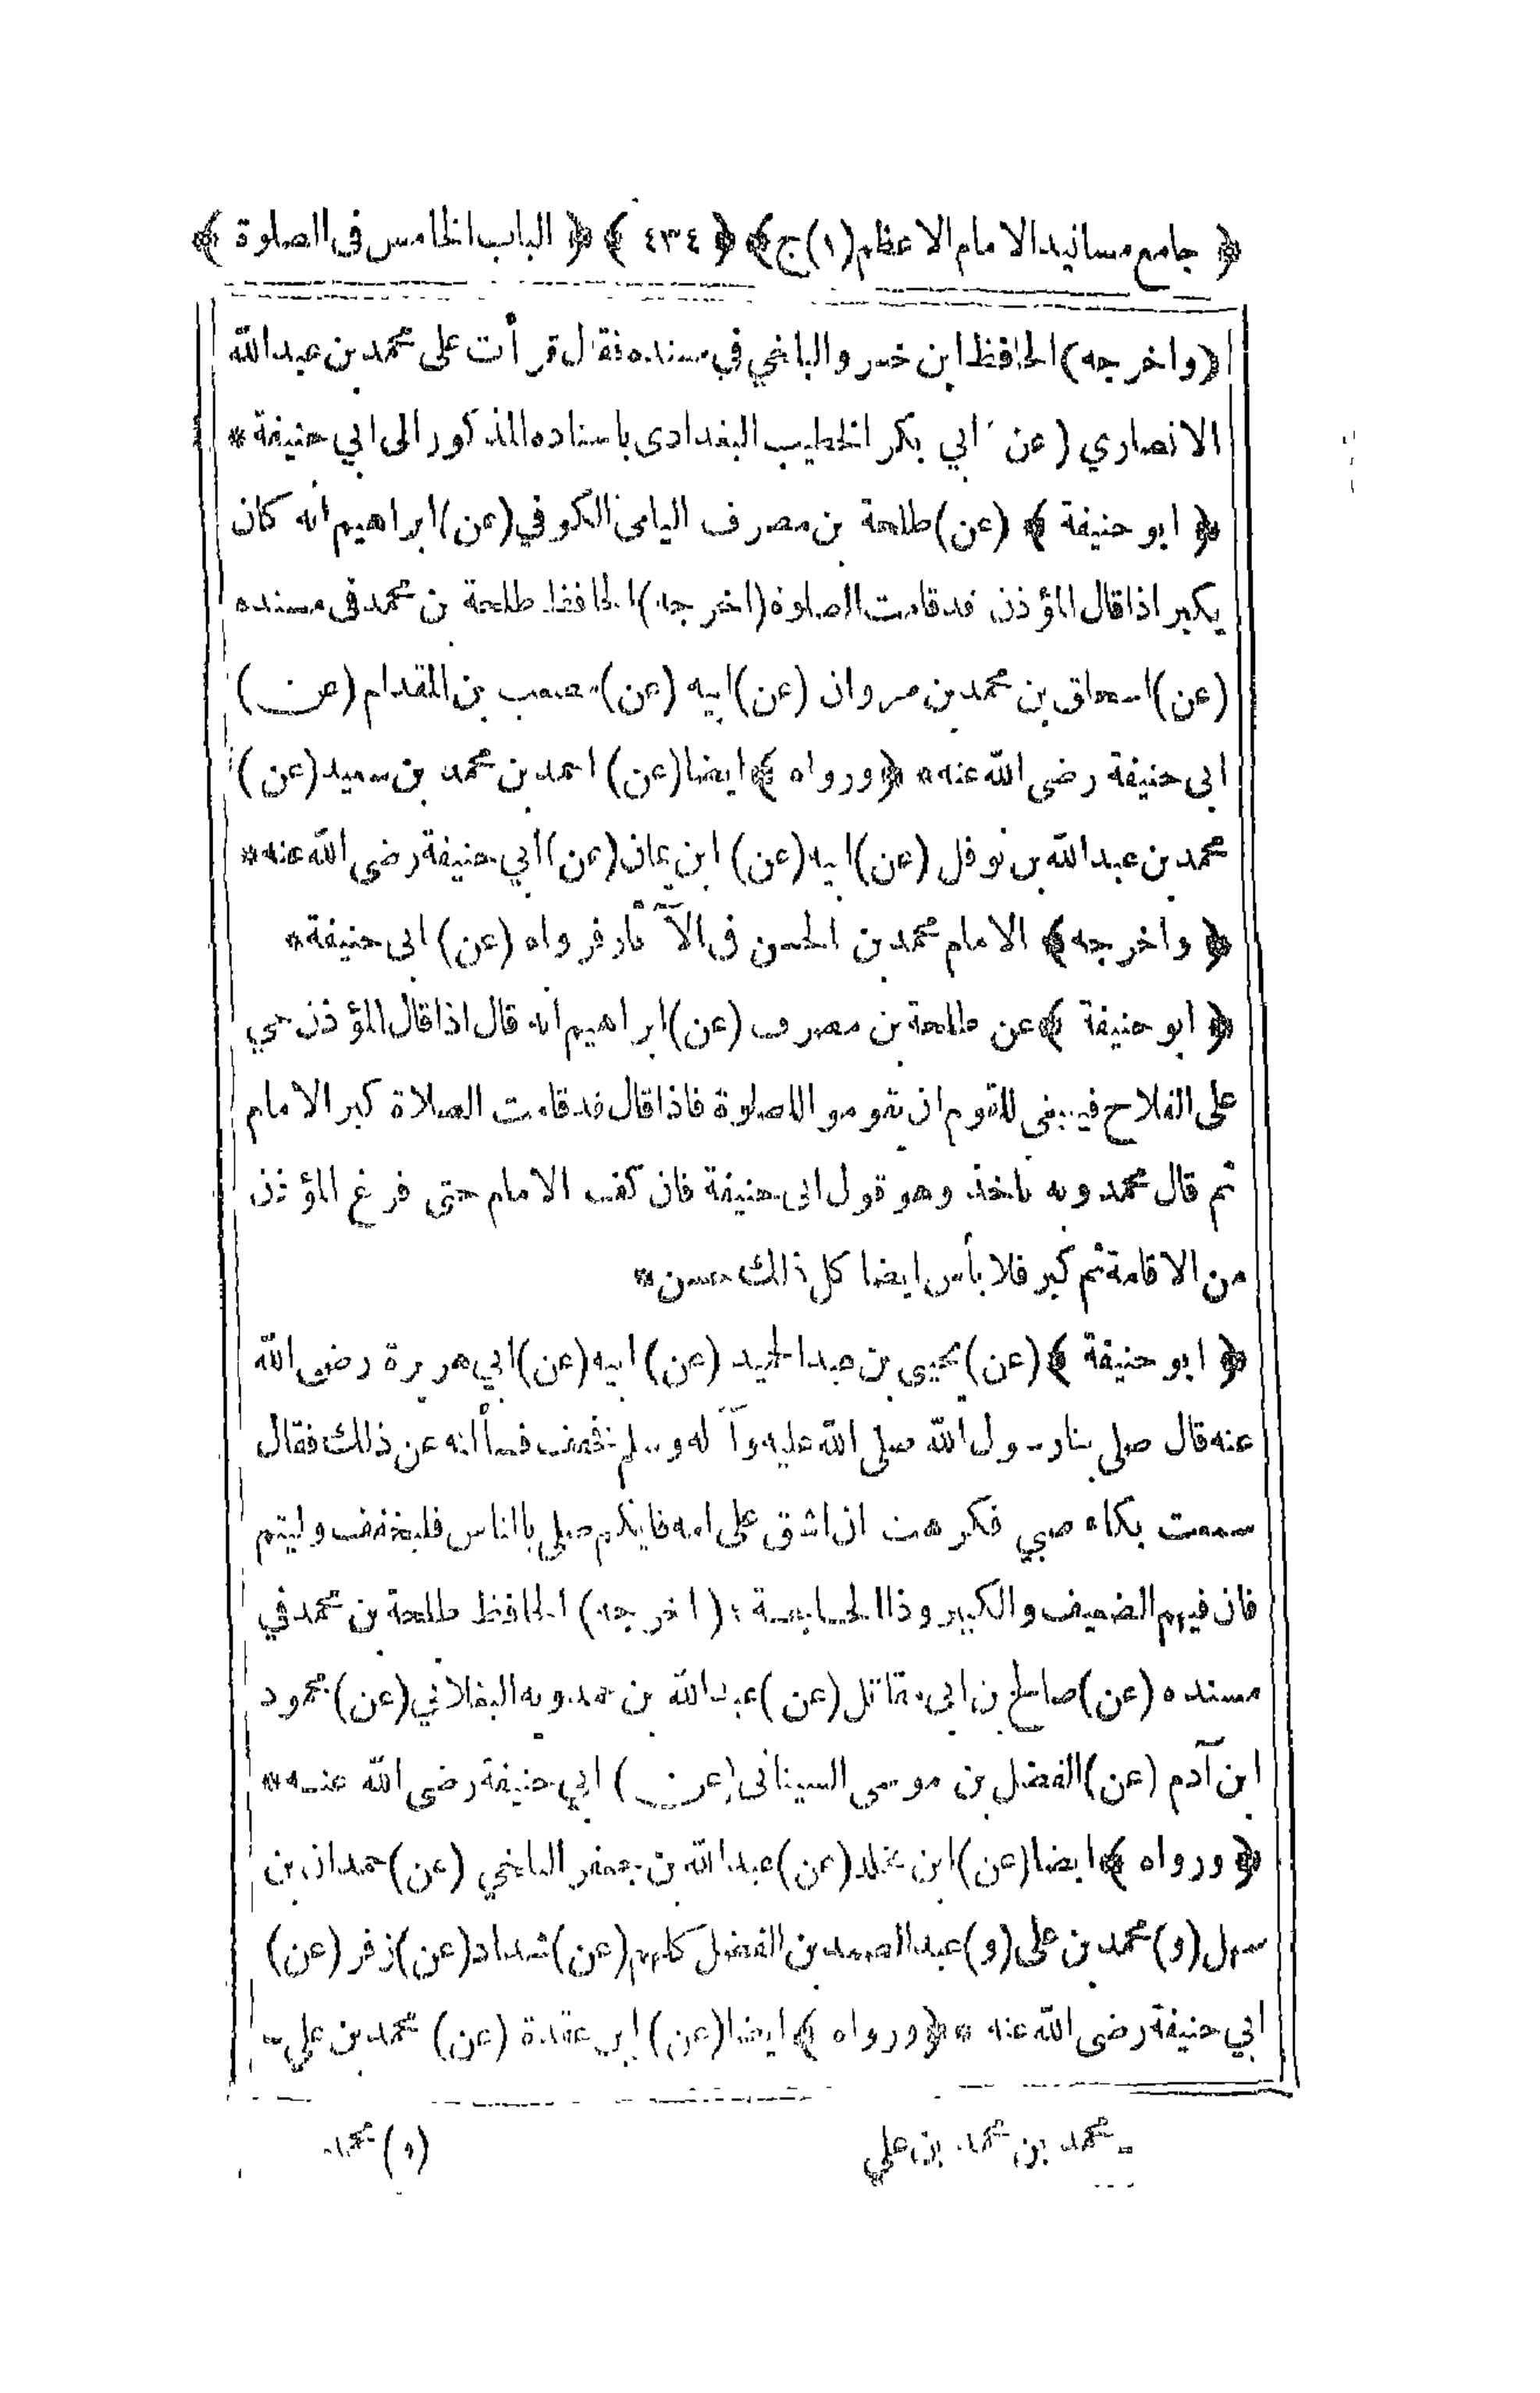 ﴿ جامع مسانيد الامام الاعظم (١) ج ﴾ ﴿ ٤٣٤ ﴾ ﴿ الباب الخامس فى الصلوة ﴾
(واخرجه) الحافظ ابن خسرو البلخي في مسنده فقال قرأت على محمد بن عبدالله
الانصاري (عن ابي بكر الخطيب البغدادى باسناده المذكور الى ابي حنيفة *
﴿ ابو حنيفة ﴾ (عن) طلحة بن مصرف اليامى الكوفي (عن) ابراهيم انه كان
يكبر اذا قال المؤذن قد قامت الصلوة (اخرجه) الحافظ طلحة بن محمد فى مسنده
(عن) اسحاق بن محمد بن مروان (عن) ابيه (عن) مصعب بن المقدام (عن)
ابى حنيفة رضى الله عنه * ﴿ ورواه ﴾ ايضا (عن) احمد بن محمد بن سعيد (عن)
محمد بن عبدالله بن نوفل (عن) ابيه (عن) ابن يمان (عن) ابي حنيفة رضى الله عنه *
﴿ واخرجه ﴾ الامام محمد بن الحسن فى الآثار فرواه (عن) ابى حنيفة *
﴿ ابو حنيفة ﴾ عن طلحة بن مصرف (عن) ابراهيم انه قال اذا قال المؤذن حي
على الفلاح فينبغى للقوم ان يقوموا للصلوة فاذا قال قد قامت الصلاة كبر الامام
ثم قال محمد وبه ناخذ وهو قول ابى حنيفة فان كف الامام حتى فرغ المؤذن
من الاقامة ثم كبر فلا بأس ايضا كل ذلك حسن *
﴿ ابو حنيفة ﴾ (عن) يحيى بن عبدالحميد (عن) ابيه (عن) ابي هريرة رضى الله
عنه قال صلى بنا رسول الله صلى الله عليه وآله وسلم فخفف فسألنه عن ذلك فقال
سمعت بكاء صبي فكرهت ان اشق على امه فايكم صلى باالناس فليخفف وليتم
فان فيهم الضعيف والكبير وذا الحاجة : (اخرجه) الحافظ طلحة بن محمد في
مسنده (عن) صالح بن ابى مقاتل (عن) عبدالله بن حمدويه البغلاني (عن) محمود
ابن آدم (عن) الفضل بن موسى السينانى (عن) ابي حنيفة رضى الله عنه *
﴿ ورواه ﴾ ايضا (عن) ابن مخلد (عن) عبدالله بن جعفر البلخي (عن) حمدان بن
سهل (و) محمد بن على (و) عبدالصمد بن الفضل كلهم (عن) شداد (عن) زفر (عن)
ابي حنيفة رضى الله عنه * ﴿ ورواه ﴾ ايضا (عن) ابن عقدة (عن) محمد بن علي -
- محمد بن محمد بن علي
(و) محمد